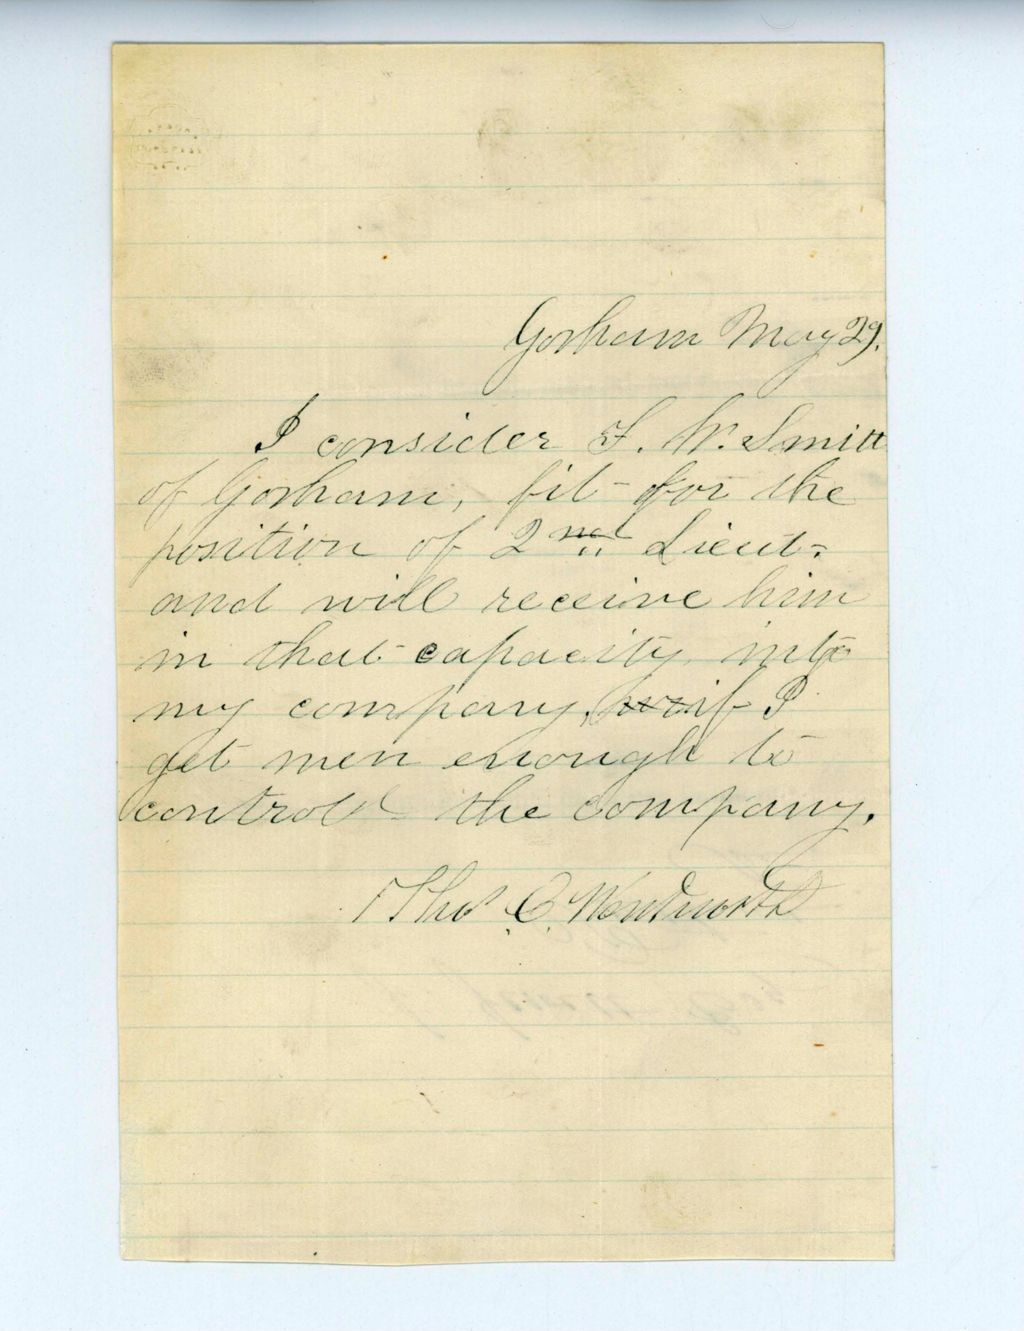 Gorham May 29.
I consider F. W. Smith
of Gorham, fit for the
position of 2nd Lieut.
and will receive him
in that capacity into
my company, if I
get men enough to
control the company.
Thos C. Wentworth